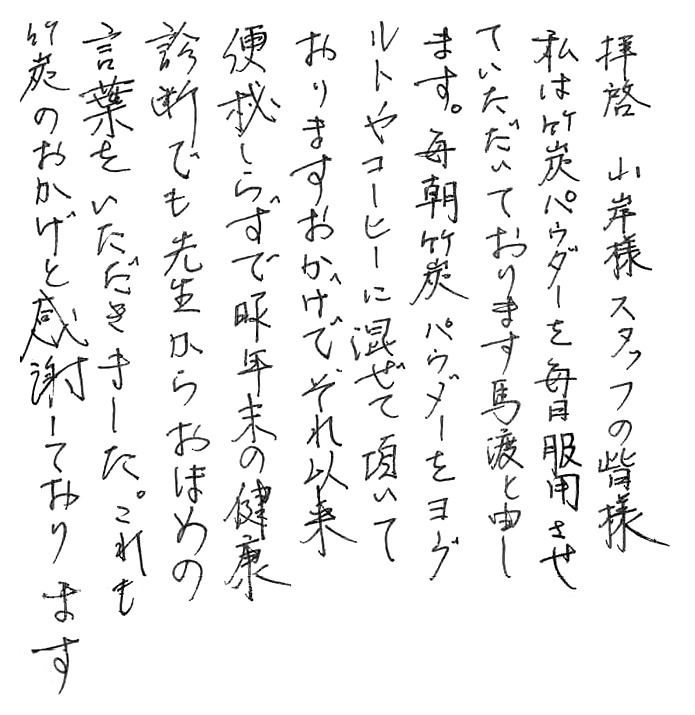 拝啓 山岸様スタッフの皆様
私は竹炭パウダーを毎日服用させ
ていただいております馬渡と申し
ます。毎朝竹炭パウダーをヨグ
ルトやコーヒーに混ぜて頂いて
おりますおかげでそれ以来
便秘しらずで昨年末の健康
診断でも先生からおほめの
言葉をいただきました。これも
竹炭のおかげと感謝しております